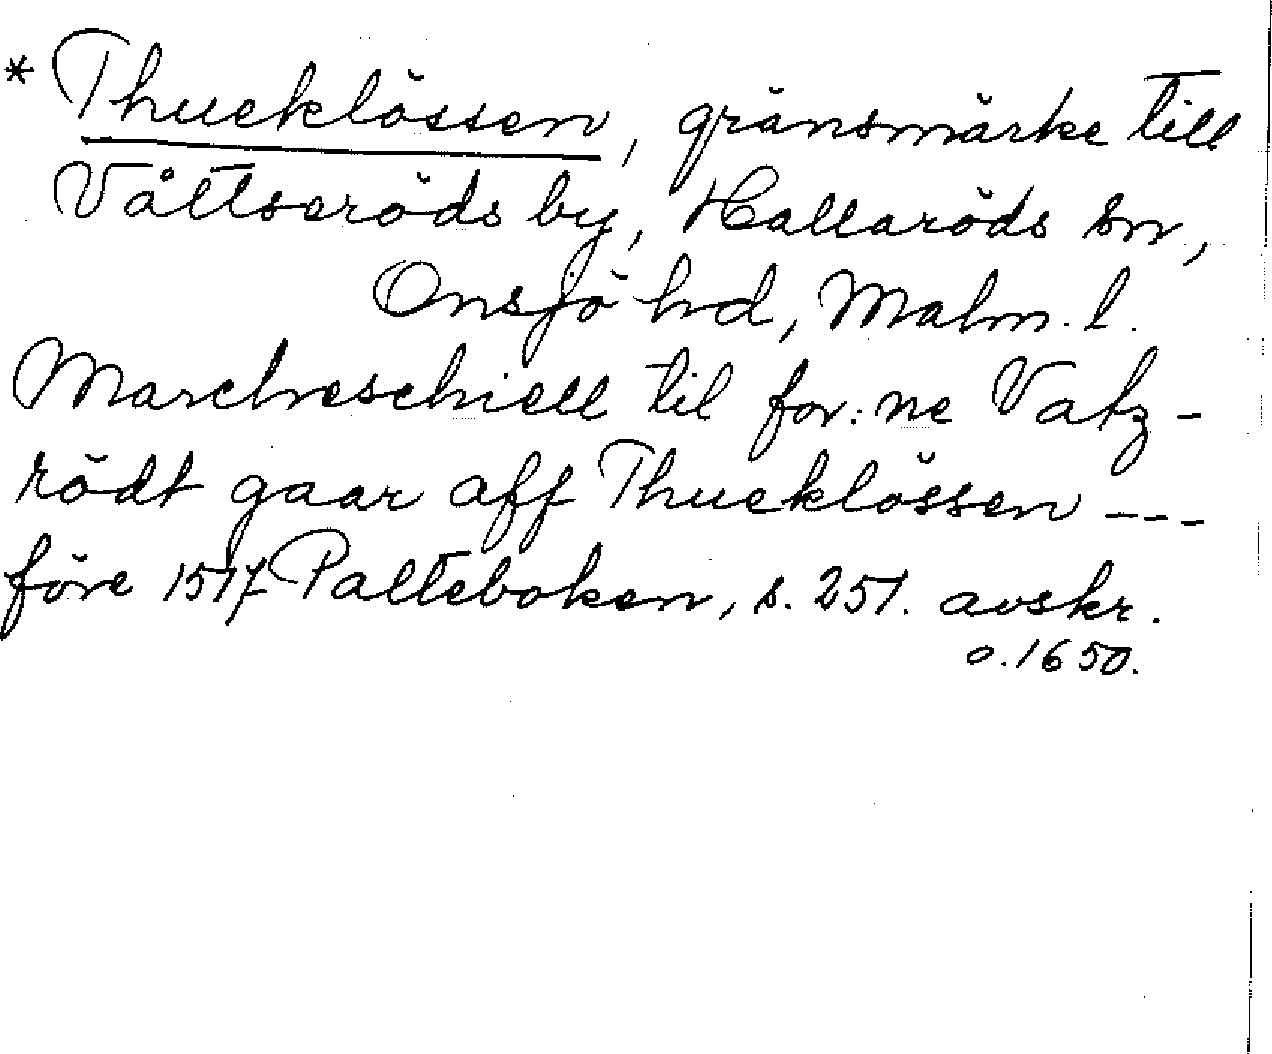 * Thueklössen, gränsmärke till
Våltseröds by, Hallaröds sn,
Onsjö hd, Malm. l.
Marcheschiell til for: ne Vatz-
rödt gaar aff Thueklössen ---
före 1517 Palteboken, s. 251. avskr.
o. 1650.